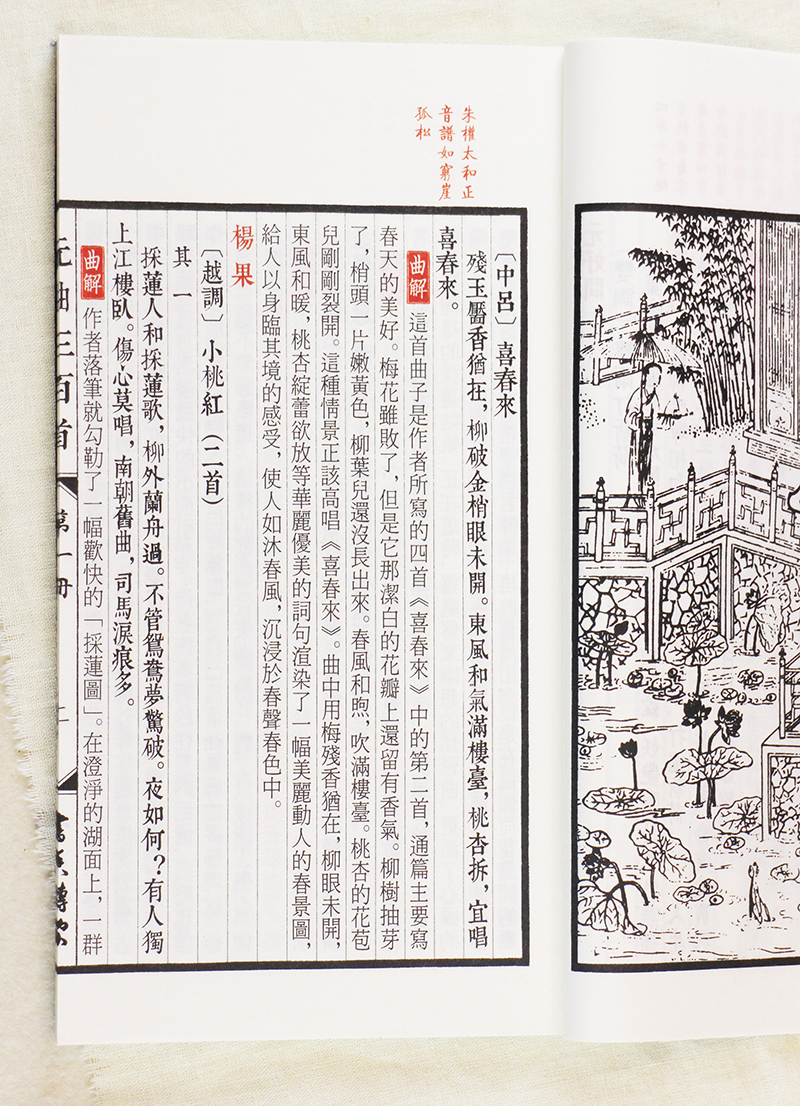 朱權太和正
音譜如窮崖
孤松
〔中呂〕喜春來
殘玉靨香猶在，柳破金梢眼未開。東風和氣滿樓臺，桃杏拆，宜唱
喜春來。
曲解 這首曲子是作者所寫的四首《喜春來》中的第二首，通篇主要寫
春天的美好。梅花雖敗了，但是它那潔白的花瓣上還留有香氣。柳樹抽芽
了，梢頭一片嫩黃色，柳葉兒還沒長出來。春風和煦，吹滿樓臺。桃杏的花苞
兒剛剛裂開。這種情景正該高唱《喜春來》。曲中用梅殘香猶在，柳眼未開，
東風和暖，桃杏綻蕾欲放等華麗優美的詞句渲染了一幅美麗動人的春景圖，
給人以身臨其境的感受，使人如沐春風，沉浸於春聲春色中。
楊果
〔越調〕小桃紅（二首）
其一
採蓮人和採蓮歌，柳外蘭舟過。不管鴛鴦夢驚破。夜如何？有人獨
上江樓臥。傷心莫唱，南朝舊曲，司馬淚痕多。
曲解 作者落筆就勾勒了一幅歡快的「採蓮圖」。在澄淨的湖面上，一群
元曲三百首 第一冊